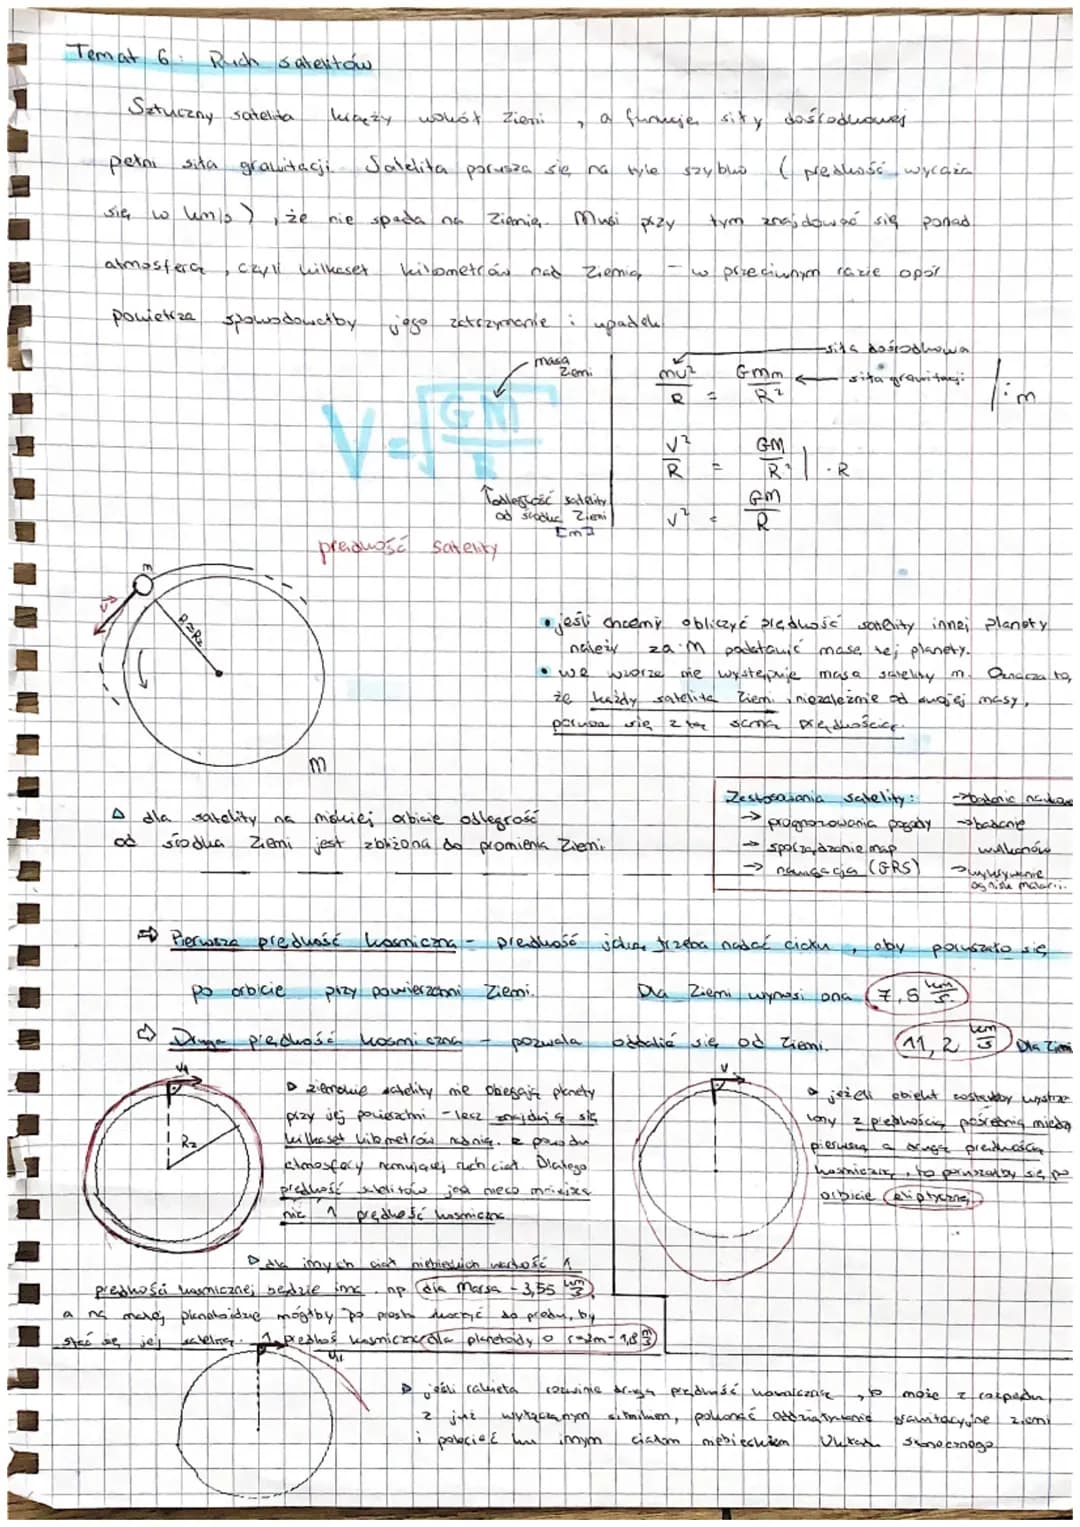 Temat 6: Ruch satelitów
Sztuczny satelita krąży wokół Ziemi, a funkcję siły dośrodkowej
pełni siła grawitacji. Satelita porusza się na tyle szybko (prędkość wyraża
się w km/s), że nie spada na Ziemię. Musi przy tym znajdować się ponad
atmosferą, czyli kilkaset kilometrów nad Ziemią - w przeciwnym razie opór
powietrza spowodowałby jego zatrzymanie i upadek.
masa Ziemi
V=√GM/R
odległość satelity
od środka Ziemi
[m]
prędkość satelity
siła dośrodkowa
mv²/R = GMm/R² siła grawitacji /:m
v²/R = GM/R² | ·R
v² = GM/R
m
v
R≈Rz
M
• jeśli chcemy obliczyć prędkość satelity innej planety
należy za M podstawić masę tej planety.
• we wzorze nie występuje masa satelity m. Oznacza to,
że każdy satelita Ziemi, niezależnie od swojej masy,
porusza się z tą samą prędkością.
△ dla satelity na niskiej orbicie odległość
od środka Ziemi jest zbliżona do promienia Ziemi.
Zastosowania satelity:
→ prognozowania pogody
→ sporządzanie map
→ nawigacja (GPS)
→ badanie naukowe
→ badanie
wulkanów
→ wykrywanie
ognisk malarii.
⇒ Pierwsza prędkość kosmiczna - prędkość jaką trzeba nadać ciału, aby poruszało się
po orbicie przy powierzchni Ziemi. Dla Ziemi wynosi ona 7,9 km/s
⇒ Druga prędkość kosmiczna - pozwala oddalić się od Ziemi. 11,2 km/s Dla Ziemi
V1
Rz
▷ ziemskie satelity nie obiegają planety
przy jej powierzchni - lecz znajdują się
kilkaset kilometrów nad nią, z powodu
atmosfery hamującej ruch ciał. Dlatego
prędkość satelitów jest nieco mniejsza
niż 1 prędkość kosmiczna
V
jeżeli obiekt zostałby wystrze
lony z prędkością pośrednią między
pierwszą a drugą prędkością
kosmiczną, to poruszałby się po
orbicie eliptycznej.
▷ dla innych ciał niebieskich wartość 1
prędkości kosmicznej będzie inna. np. dla Marsa - 3,55 km/s,
a na małej planetoidzie mógłby po prostu skoczyć do przodu, by
stać się jej satelitą. 1 prędkość kosmiczna dla planetoidy o r=2m - 1,8 m/s
VII
▷ jeśli rakieta rozwinie drugą prędkość kosmiczną, to może z rozpędu,
z już wyłączonym silnikiem, pokonać oddziaływanie grawitacyjne Ziemi
i polecieć ku innym ciałom niebieskim Układu Słonecznego